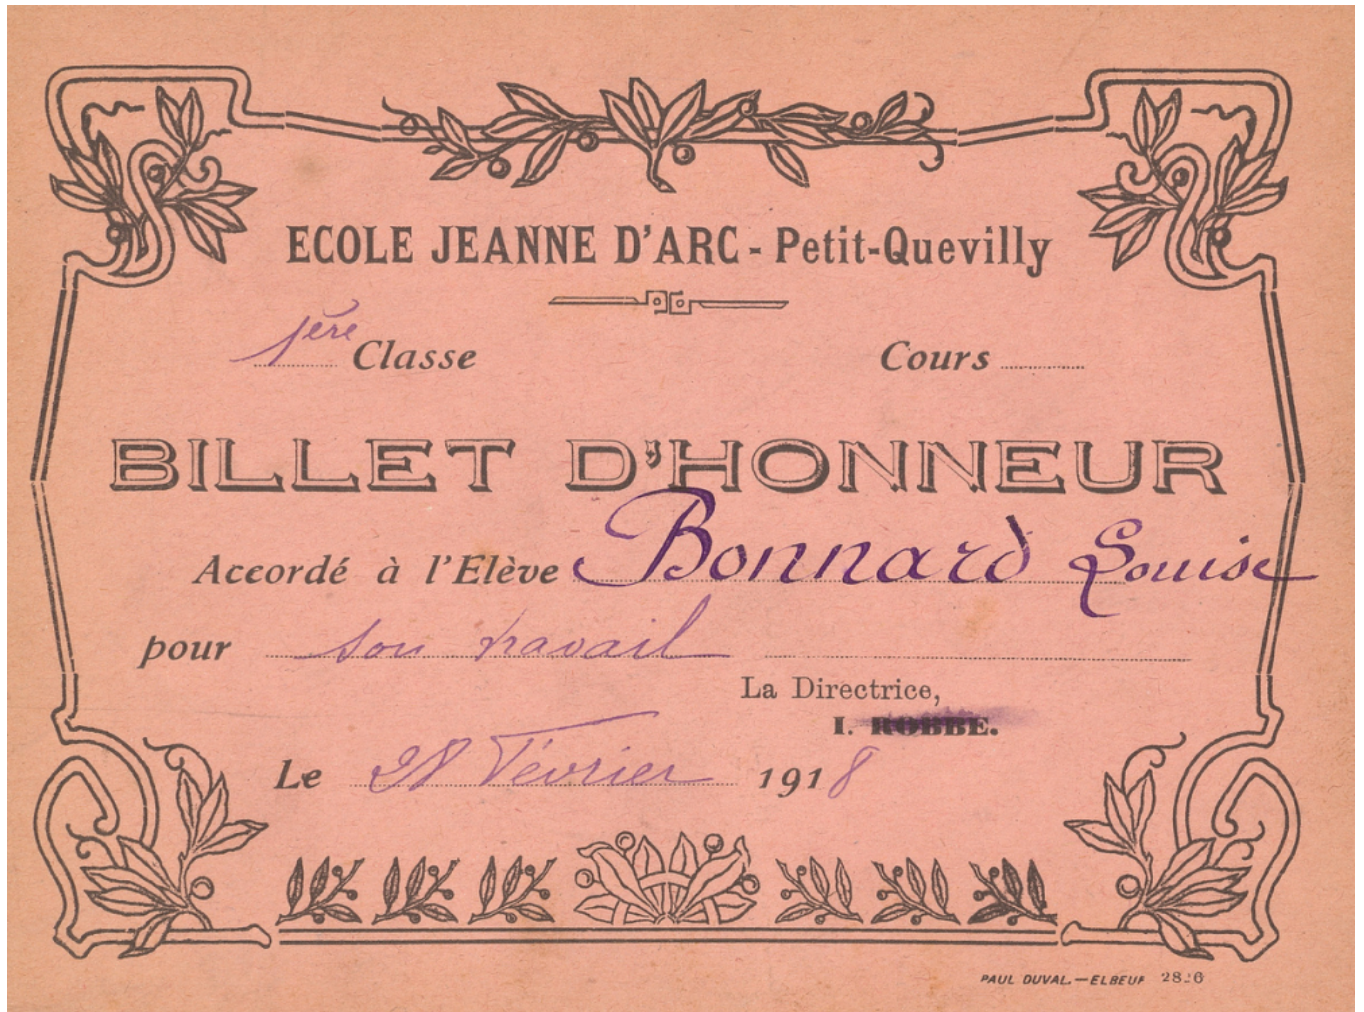 ECOLE JEANNE D'ARC - Petit-Quevilly
1ère Classe Cours
BILLET D'HONNEUR
Accordé à l'Elève Bonnard Louise
pour son travail
La Directrice,
I. ROBBE.
Le 28 Février 1918
PAUL DUVAL.—ELBEUF